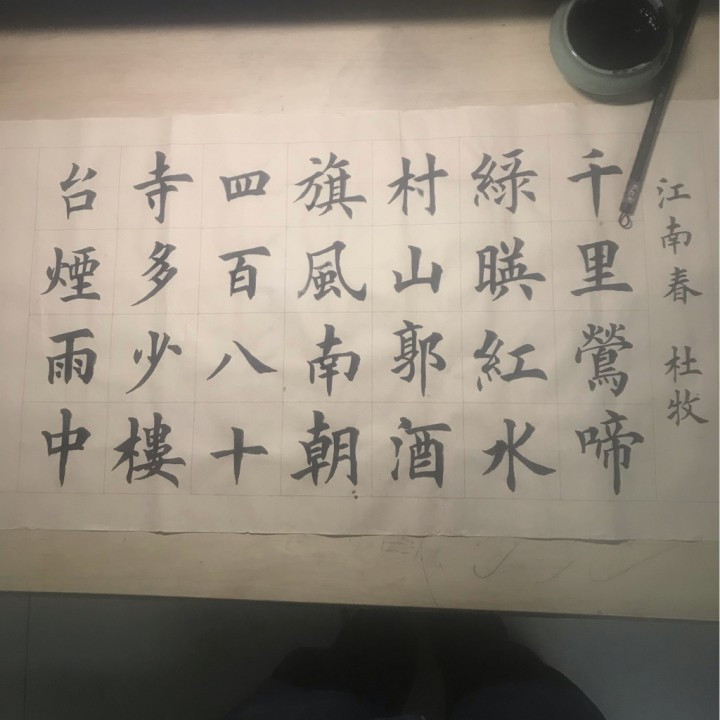 江南春 杜牧
千里鶯啼
綠暎紅水
村山郭酒
旗風南朝
四百八十
寺多少樓
台煙雨中